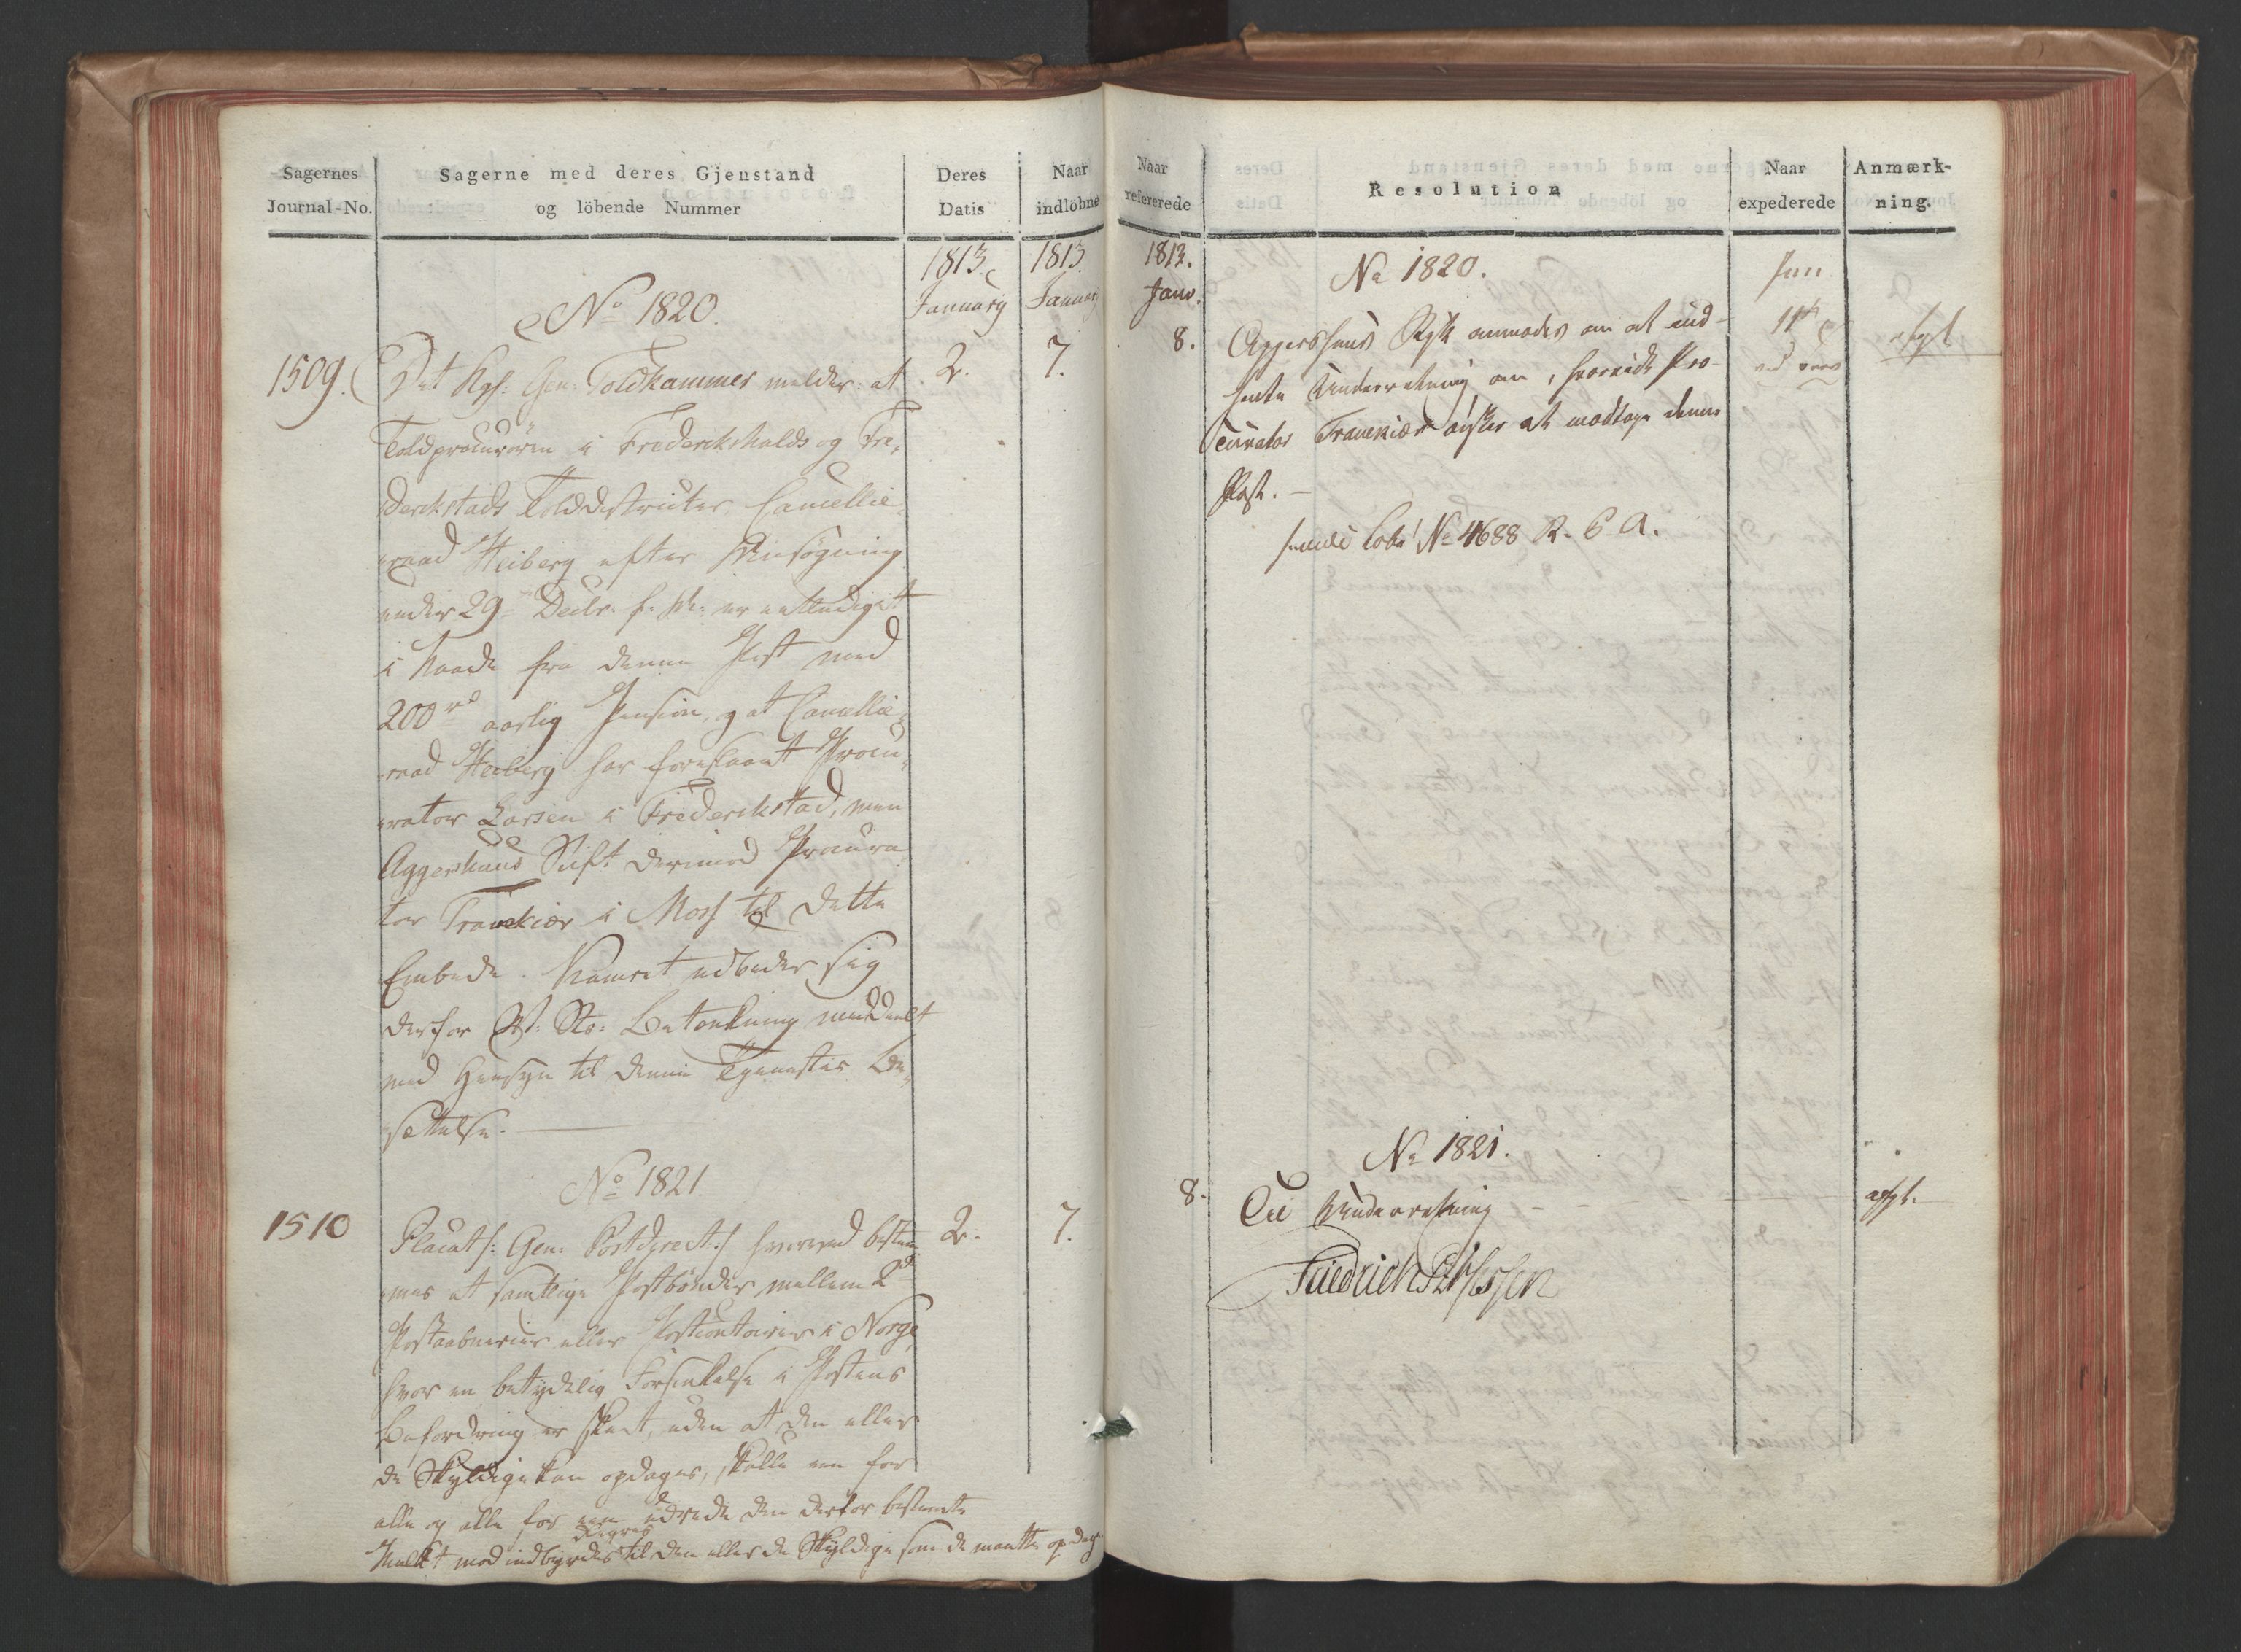 Sagernes
Journal-No.
Sagerne med deres Gjenstand
og löbende Nummer
Deres
Datis
Naar
indlöbne
1813.
January
1813
January
No 1820.
1509.
Det Kgl: Gen: Toldkammer melder: at
2.
7.
Toldprocuroren i Fredericshalds og Fre,
derikstads Tolddistricter, Cancellie,
raad Heiberg efter Ansøgning
under 29 Decbr. f. A: er entlediget
i Naade fra denne Post med
200 rd aarlig Pension, og at Cancellie,
raad Heiberg har foreslaaet Procu,
rator Larsen i Frederikstad, men
Aggershuus Stift derimod Procura
tor Tranekiær i Moss til dette
Embede. Kamret udbeder sig
derfor R: Co: Betænkning meddeelt
med Hensyn til denne Tjenestes Be,
sættelse.
No 1821
1510
Placat f: Gen: Postdirect: hvorved bestem
2.
7.
mes at samtlige Postbønder mellem 2de
Postaabnerier eller Postcontoirer i Norge,
hvor en betydelig Forsinkelse i Postens
Befordring er skeet, uden at den eller
de Skyldige kan opdages, skulle een for
alle og alle for een udrede den derfor bestemte
Regres
Mulkt mod indbyrdes til den eller de Skyldige som de maatte opdage
Naar
refererede
Resolution
Naar
expederede
Anmærk-
ning.
1813.
Janv.
No 1820.
Jan
8.
Aggershuus Stift anmodes om at ind-
11te
afgt
hente Underretning om, hvorvidt Pro-
curator Tranekiær ønsker at modtage denne
Post.
No 4688 R. C A.
No 1821.
8.
Til Underretning
afgt.
Friedrich